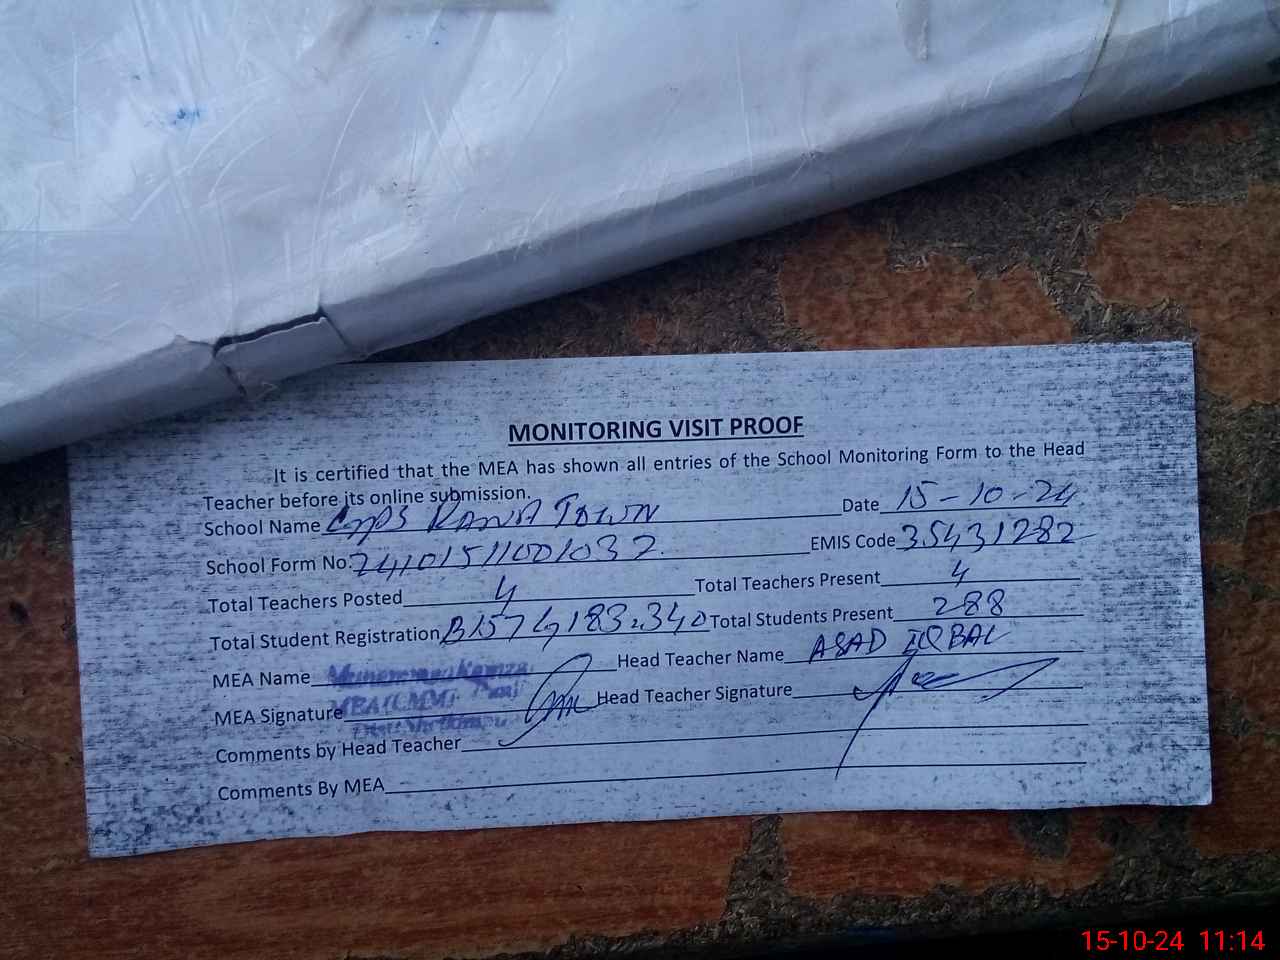 MONITORING VISIT PROOF
It is certified that the MEA has shown all entries of the School Monitoring Form to the Head
Teacher before its online submission.
School Name GPS RANA TOWN Date 15-10-24
School Form No: 24101511001032 EMIS Code 35431282
Total Teachers Posted 4 Total Teachers Present 4
Total Student Registration B157 G183=340 Total Students Present 288
MEA Name Head Teacher Name ASAD IQBAL
MEA Signature Head Teacher Signature
Comments by Head Teacher
Comments By MEA
15-10-24 11:14